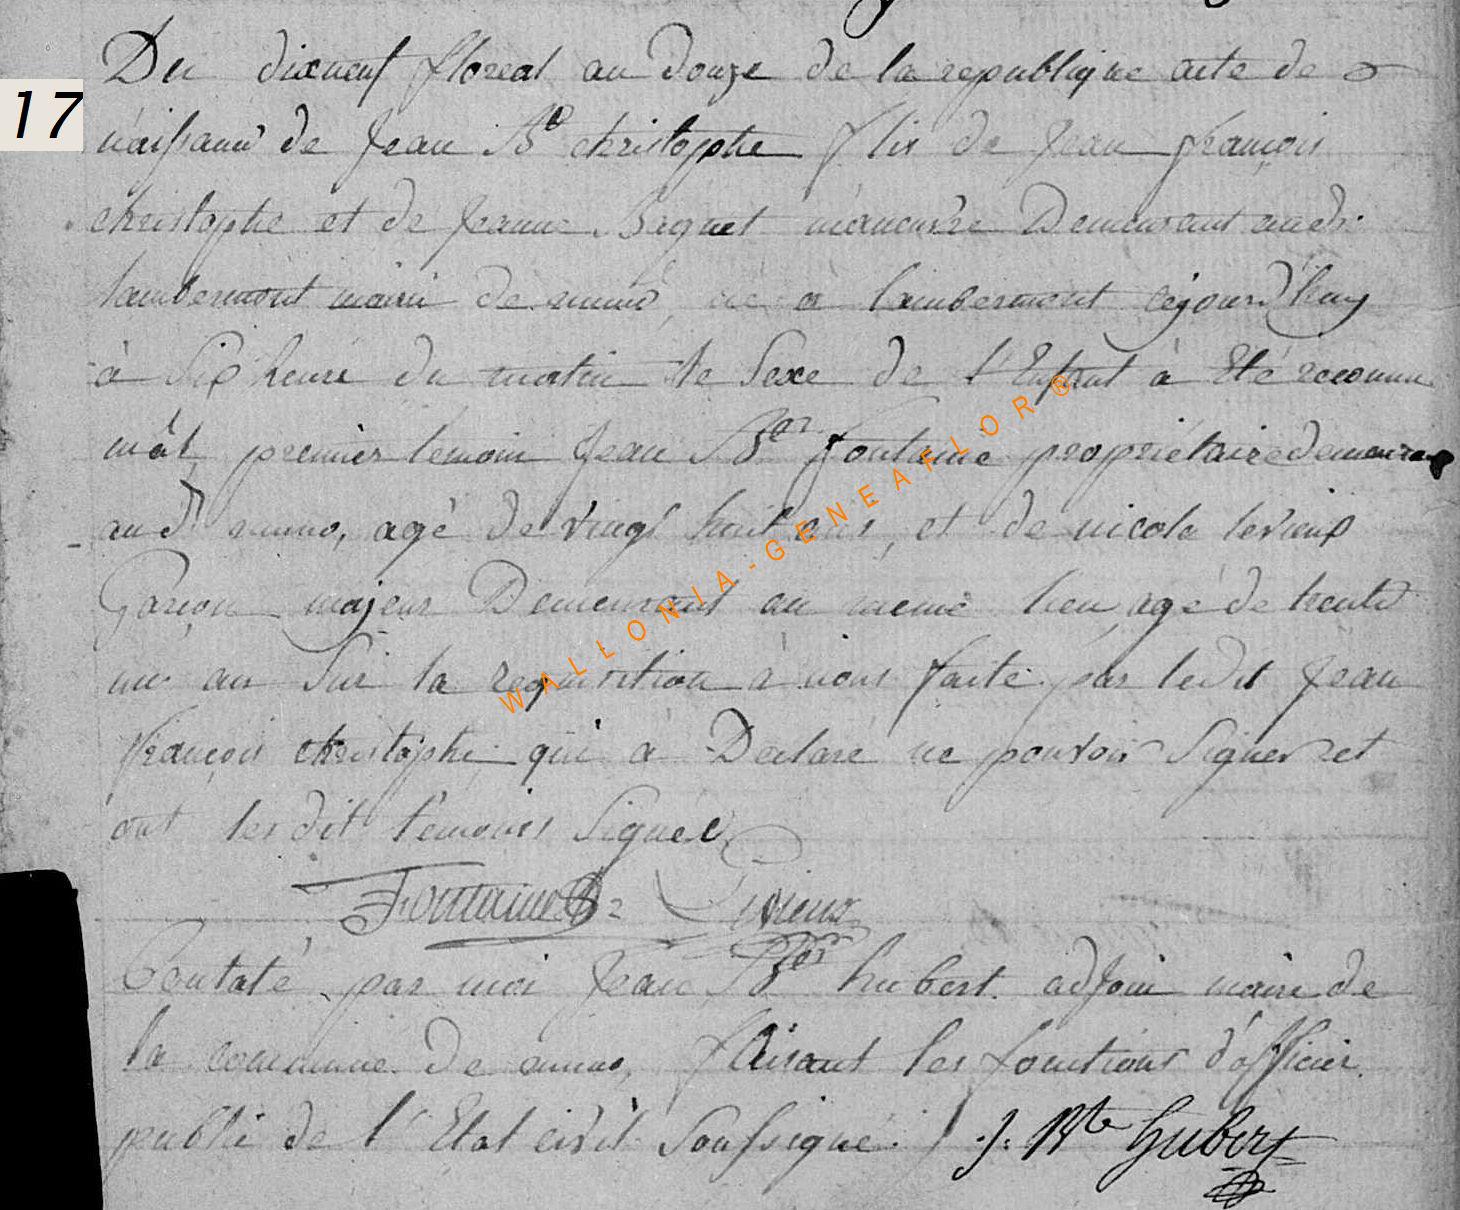 17
Du dixneuf floreal an Douze de la republique acte de
naissance de Jean Bte christophe fils de Jean françois
christophe et de Jeanne Baquet manouvre Demeurant audit
lambermont mairi de muno, né a lambermont cejourd'huy
à Six heure du matin le Sexe de l'Enfant à Eté reconnu
mâl, premier temoin Jean Bte fontaine propriétaire demeurant
aud muno, agé de vingt huit ans, et de nicola levieux
Garçon majeur Demeurant au meme lieu agé de trente
un an Sur la requisition à nous faite par ledit Jean
françois christophe qui a Declaré ne pouvoir Signer et
ont lesdit temoins Signée
Fontaine Levieux
Contaté par moi Jean Bte hubert adjoin maire de
la commune de muno, faisant les fonctions d'officier
public de l'Etat civil Soussigné. J: Bte Hubert
WALLONIA-GENEAFLOR®